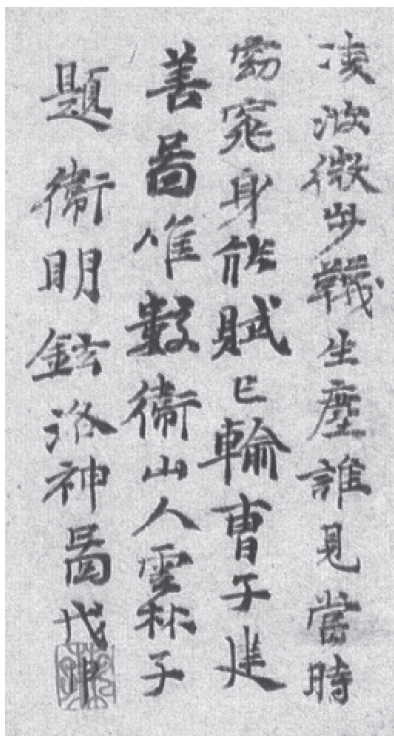 凌波微步韈生塵誰見當時
窈窕身能賦已輸曹子建
善啚惟數衛山人雲林子
題衛明鉉洛神啚戊申